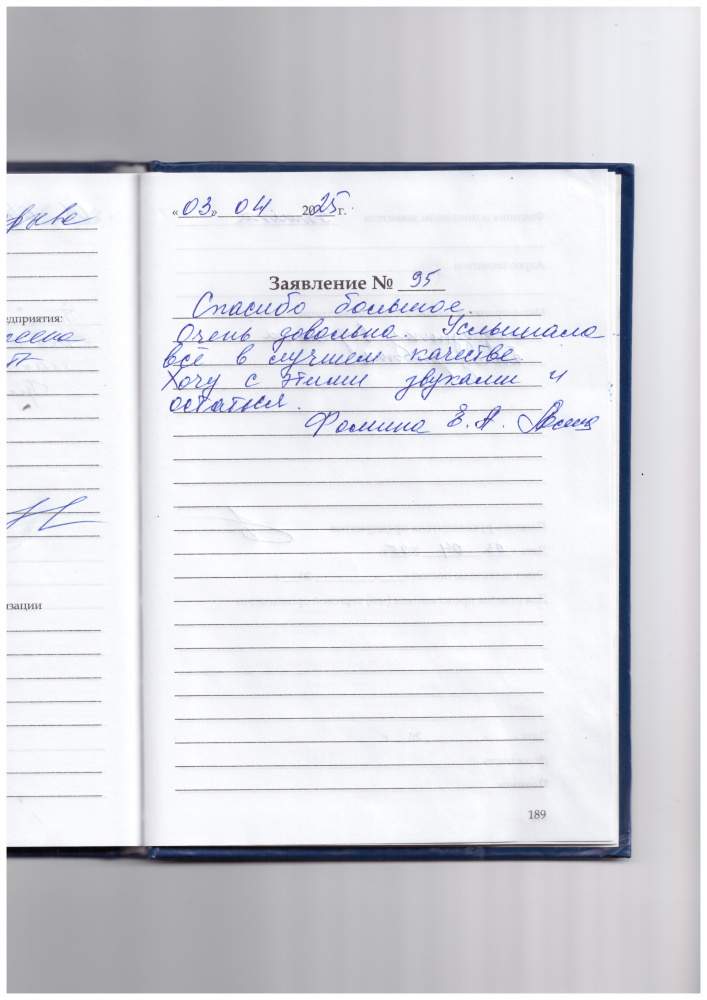 «03» 04 2025 г.
Заявление № 95
Спасибо большое.
Очень довольна. Услышала
всё в лучшем качестве
Хочу с этими звуками и
остаться.
Фомина Е. А.
едприятия:
изации
189